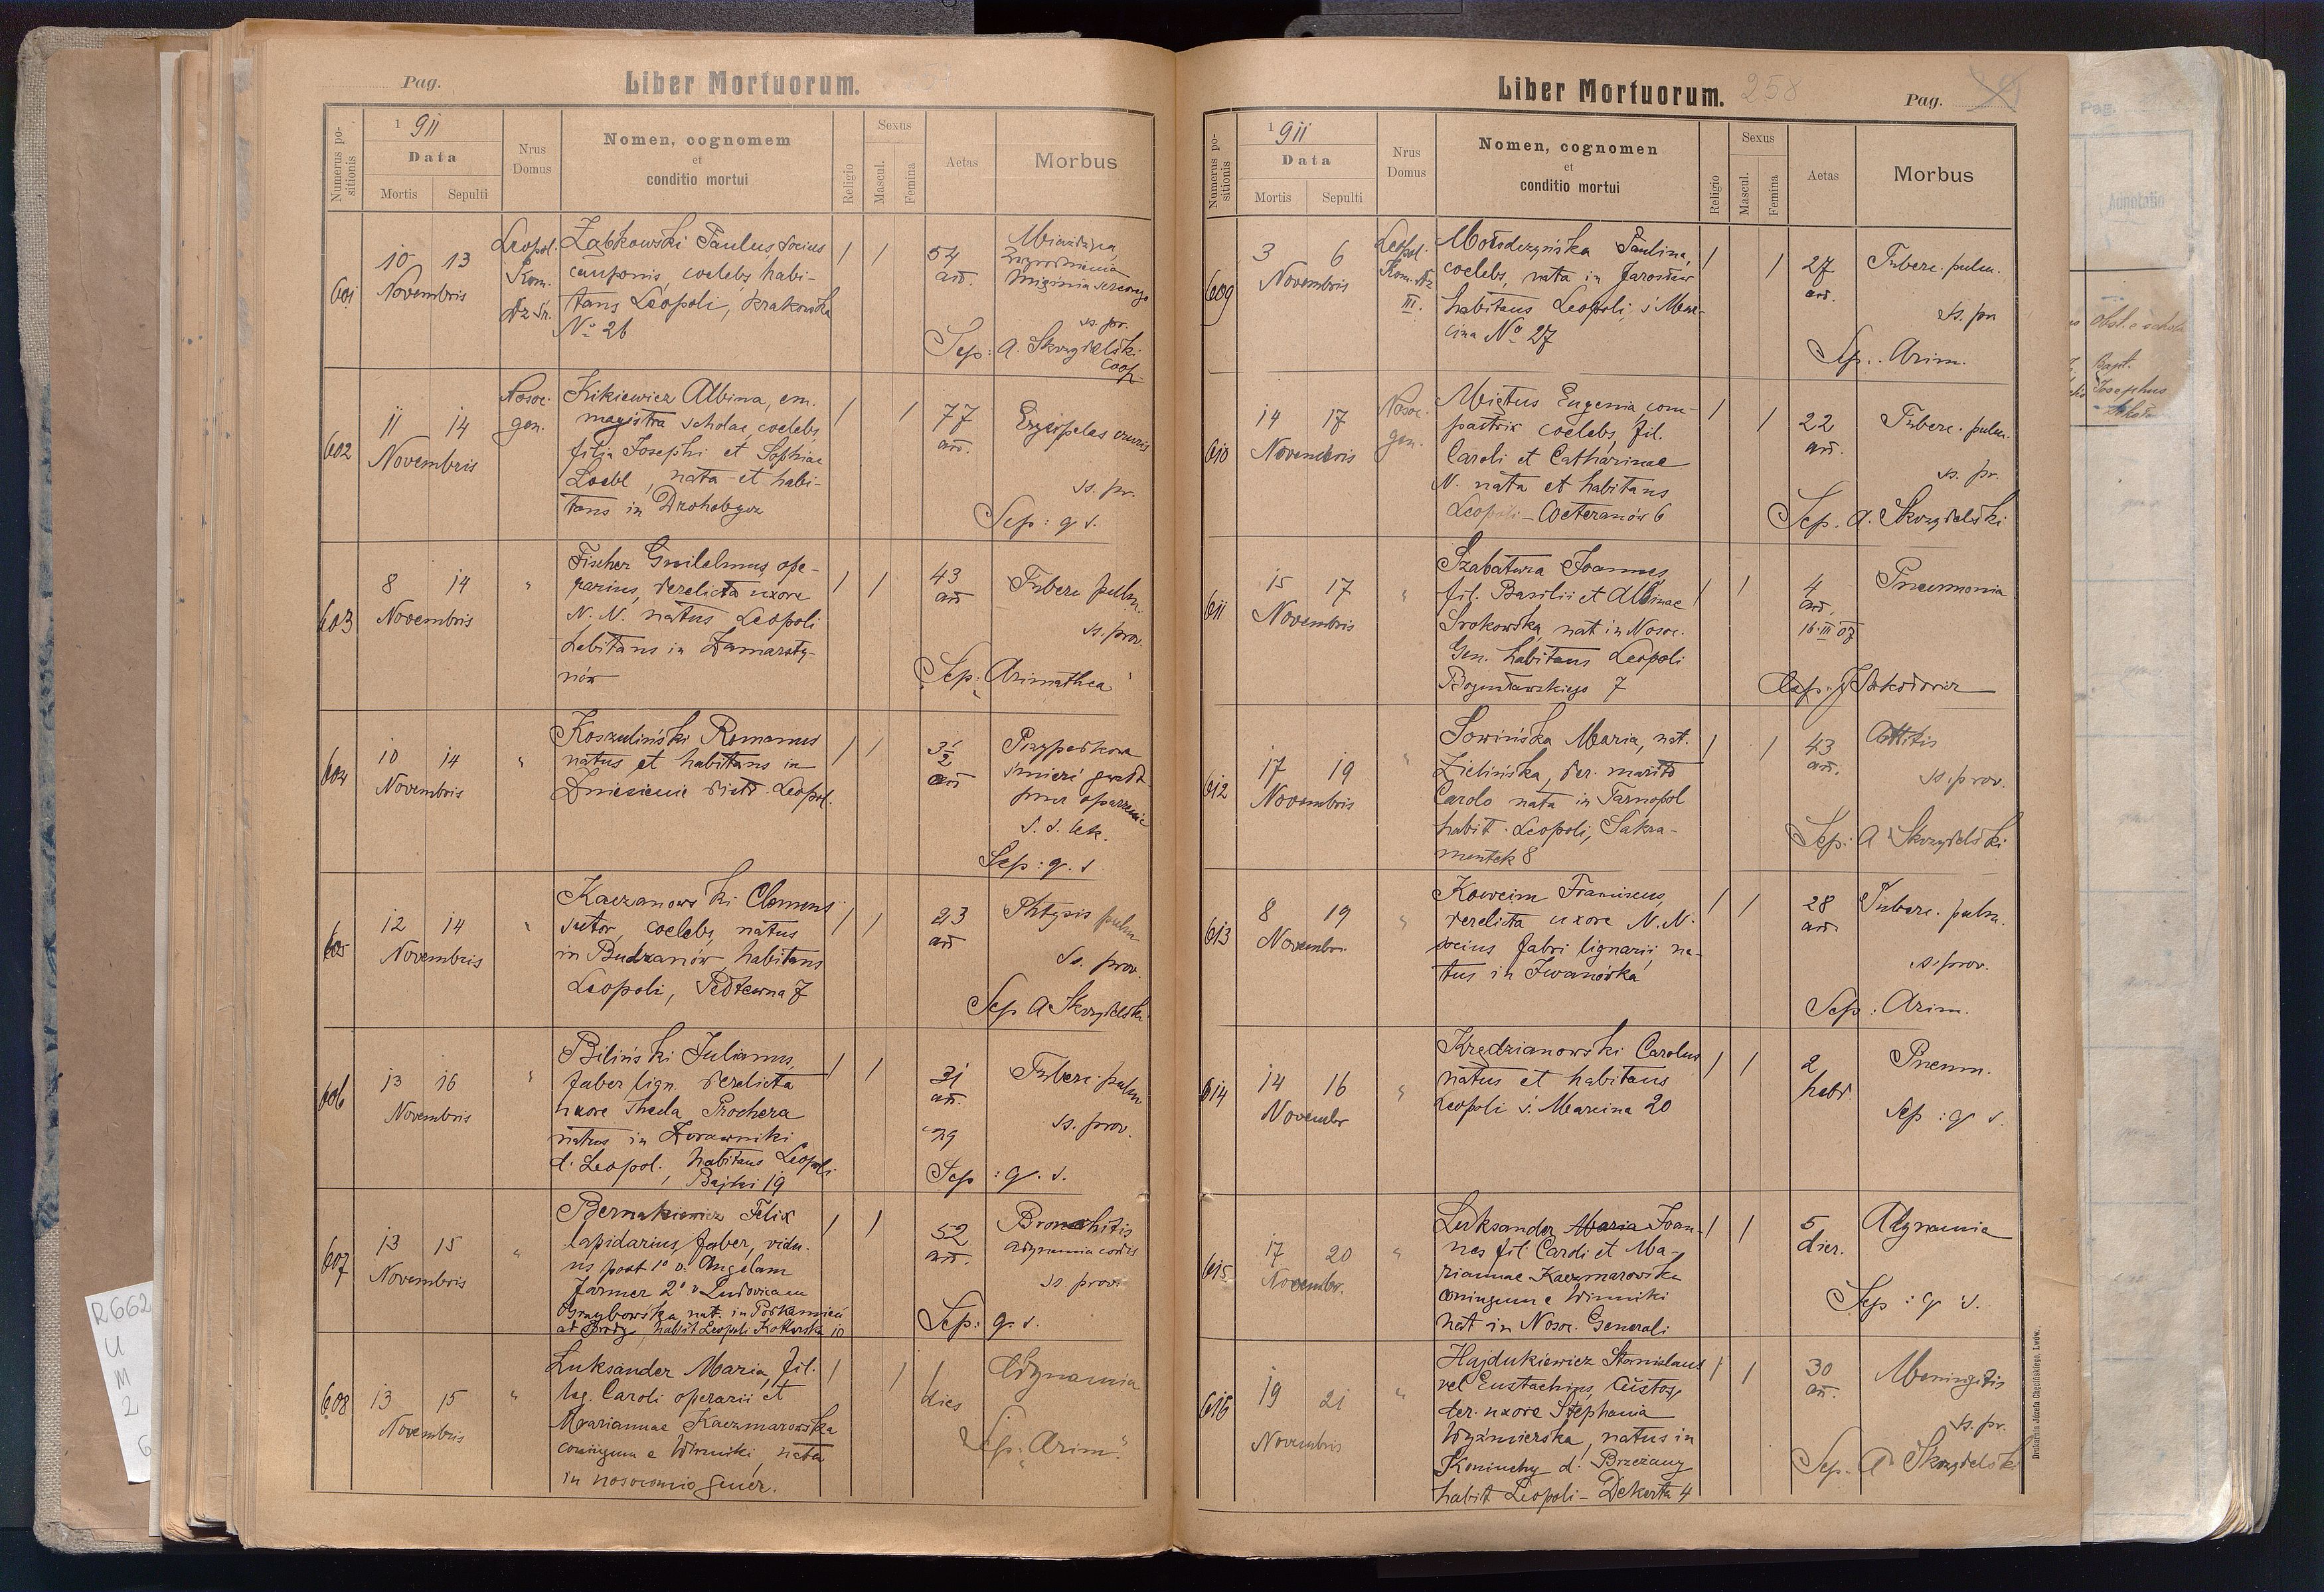 Pag.
Liber Mortuorum.
Numerus positionis
1911
Data
Mortis Sepulti
Nrus Domus
Nomen, cognomem
et
conditio mortui
Religio
Sexus
Mascul. Femina
Aetas
Morbus
601
10 13
Novembris
Leopol.
Kom.
Dz. śr.
Ząbkowski Paulus, socius
cauponis, coelebs, habi-
tans Leopoli, Krakowska
No 26
1 1
54
an.
Miażdżyca
mięśnia sercowego
ss. pr.
Sep: A. Skrzydelski
Coop.
602
11 14
Novembris
Nosoc.
gen.
Kikiewicz Albina, em.
magistra scholae, coelebs,
filia Josephi et Sophiae
Loebl, nata et habi-
tans in Drohobycz
1 1
77
an.
Erysipelas cruris
ss. pr.
Sep: q. s.
603
8 14
Novembris
"
Fischer Guilelmus, ope-
rarius, derelicta uxore
N. N. natus Leopoli
habitans in Zamarsty-
nów
1 1
43
an
Tuberc. pulm.
ss. prov.
Sep: Arimathea
604
10 14
Novembris
"
Koszuliński Romanus
natus et habitans in
Zniesienie distr. Leopol.
1 1
3 1/2
an
Przypadkowa
śmierć gwałt.
przez oparzenie
S. s. lek.
Sep: q. s
605
12 14
Novembris
"
Kaczanowski Clemens
sutor, coelebs, natus
in Budzanów, habitans
Leopoli, Pełtewna 7
1 1
23
an
Phtysis pulm
Ss. prov.
Sep A Skrzydelski
606
13 16
Novembris
"
Biliński Julianus,
faber lign. derelicta
uxore Thecla Prochera
natus in Żurawniki
d. Leopol., habitans Leopoli
Bajki 19
1 1
31
an.
Tuberc. pulm
ss. prov.
Sep: q. s.
607
13 15
Novembris
"
Bernakiewicz Felix
lapidarius faber, vidu-
us post 1o v. Angelam
Farmer 2o v Ludovicam
Grzybowska, nat. in Podkamień
ad Brody, habit Leopoli Kotlarska 10
1 1
52
an.
Bronchitis
adynamia cordis
ss. prov.
Sep: q. s.
608
13 15
Novembris
"
Luksander Maria, fil.
leg. Caroli operarii et
Mariannae Kaczmarowska
coniugum e Winniki, nata
in nosocomio gener.
1 1
1
dies
Adynamia
Sep: "Arim."
Liber Mortuorum. 258
Pag.
Numerus positionis
1911
Data
Mortis Sepulti
Nrus
Domus
Nomen, cognomen
et
conditio mortui
Religio
Sexus
Mascul. Femina
Aetas
Morbus
609
3 6
Novembris
Leopol.
Kom. Dz
III.
Mołodczyńska Paulina,
coelebs, nata in Jarosław
habitans Leopoli, ś. Mar-
cina No 27
1 1
27
an.
Tuberc. pulm.
ss. pr
Sep. Arim.
610
14 17
Novembris
Nosoc.
gen.
Miętus Eugenia com-
pactrix coelebs, fil.
Caroli et Catharinae
N. nata et habitans
Leopoli - Weteranów 6
1 1
22
an.
Tuberc. pulm.
ss. pr.
Sep. A. Skrzydelski
611
15 17
Novembris
"
Szabatura Joannes,
fil. Basilii et Albinae
Srokowska, nat in Nosoc.
Gen. habitans Leopoli
Bogusławskiego 7
1 1
4
an.
16 III 07
Pneumonia
612
17 19
Novembris
"
Sowińska Maria, nat.
Zielińska, der. marito
Carolo nata in Tarnopol
habit. Leopoli, Sakra-
mentek 8
1 1
43
an.
ss. prov.
Sep: A Skrzydelski
613
8 19
Novembr.
"
Kowcim Franciscus,
derelicta uxore N. N.
socius fabri lignarii, na-
tus in Iwanówka
1 1
28
an.
Tuberc. pulm.
ss. prov.
Sep. Arim.
614
14 16
Novembr
"
Krędzianowski Carolus
natus et habitans
Leopoli ś. Marcina 20
1 1
2
hebd.
Pneum.
Sep: q s.
615
17 20
Novembr.
"
Luksander Maria Joan-
nes fil. Caroli et Ma-
riannae Kaczmarowska
coniugum e Winniki
nat in Nosoc. Generali
1 1
5
dier.
Adynamia
Sep: q. s.
616
19 21
Novembris
"
Hajdukiewicz Stanislaus
vel Eustachius, Custos,
der. uxore Stephania
Wyżmierska, natus in
Koniuchy d. Brzeżany
habit Leopoli - Dekerta 4
1 1
30
an.
Meningitis
ss. pr.
Sep. A Skrzydelski
Drukarnia Józefa Chęcińskiego, Lwów.
Pag.
Adnotatio
Bapt.
Josephus
R662
U
M
2
6